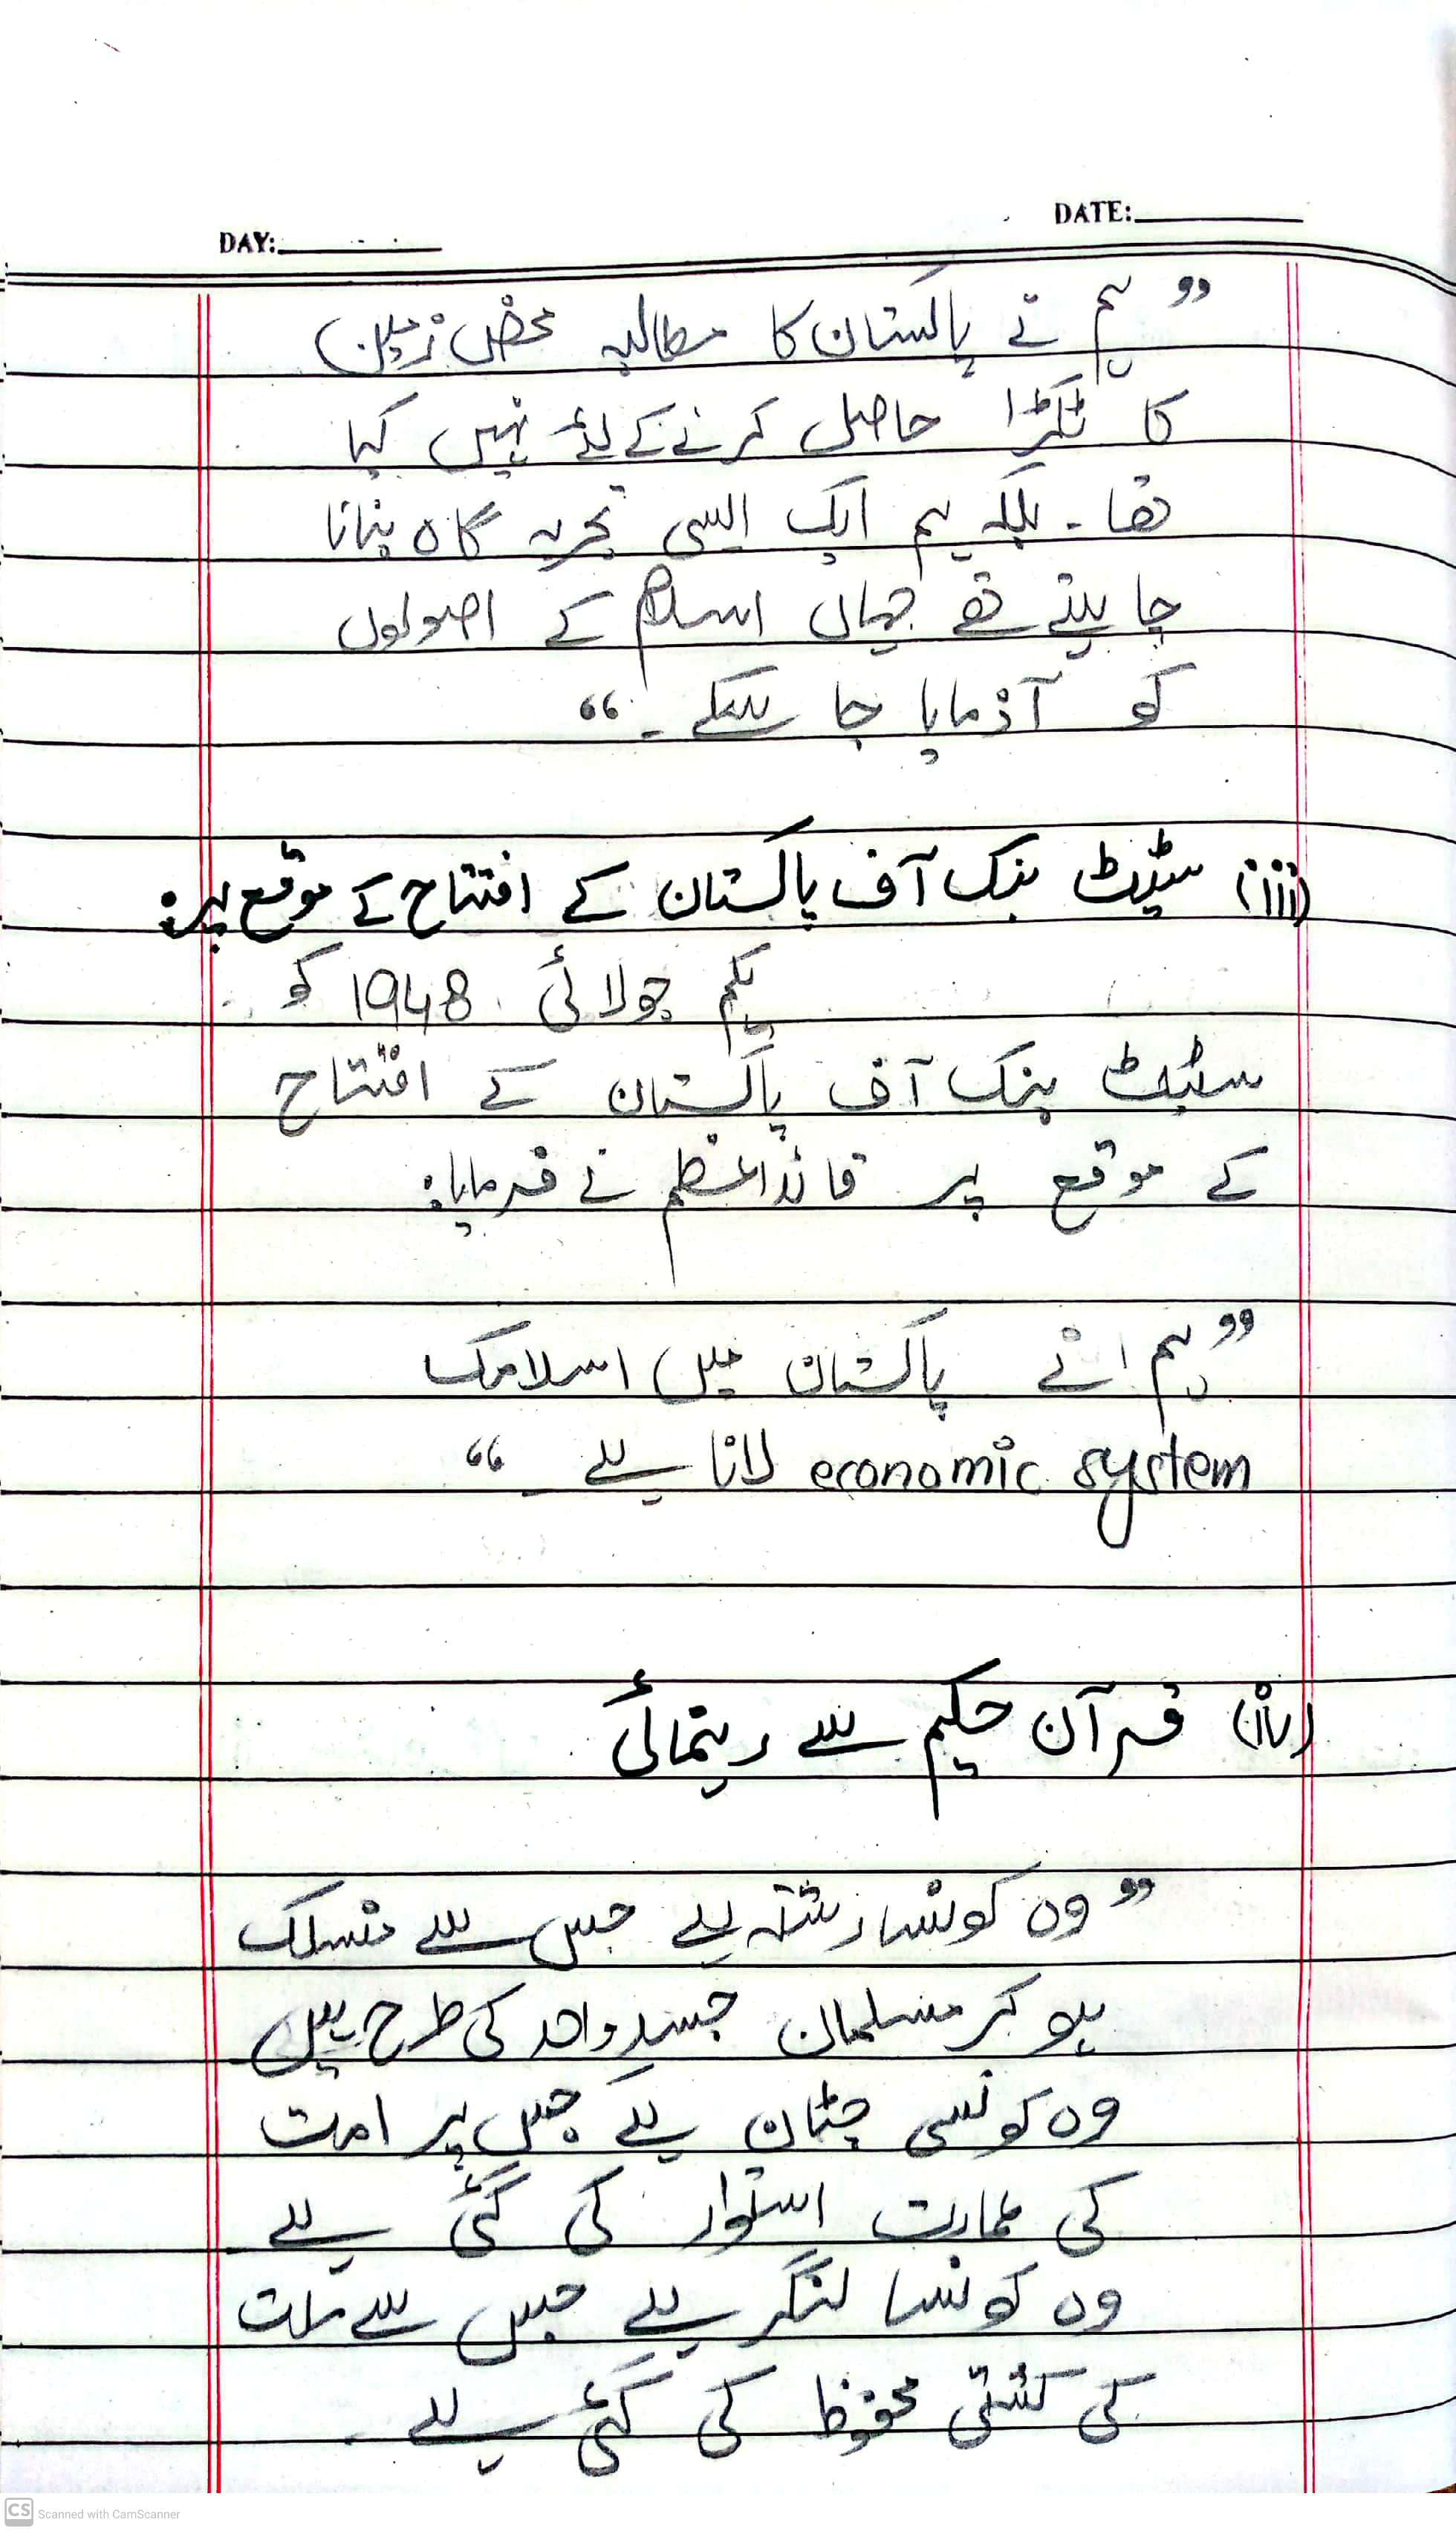 DAY: DATE:
”ہم نے پاکستان کا مطالبہ محض زمین
کا ٹکڑا حاصل کرنے کے لئے نہیں کیا
تھا۔ بلکہ ہم ایک ایسی تجربہ گاہ بنانا
چاہتے تھے جہاں اسلام کے اصولوں
کو آزمایا جا سکے۔“
(iii) سٹیٹ بنک آف پاکستان کے افتتاح کے موقع پر:
یکم جولائی 1948 کو
سٹیٹ بنک آف پاکستان کے افتتاح
کے موقع پر قائداعظم نے فرمایا:
”ہم نے پاکستان میں اسلامک
economic system لانا ہے۔“
(iv) قرآن حکیم سے رہنمائی
”وہ کونسا رشتہ ہے جس سے منسلک
ہو کر مسلمان جسدِ واحد کی طرح ہیں
وہ کونسی چٹان ہے جس پر امت
کی عمارت استوار کی گئی ہے
وہ کونسا لنگر ہے جس سے ملت
کی کشتی محفوظ کی گئی ہے۔
CS Scanned with CamScanner